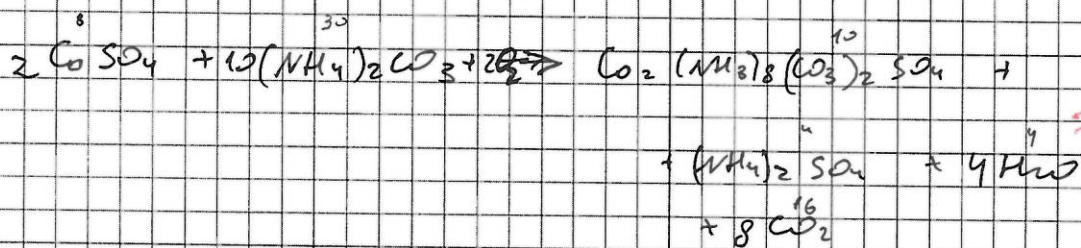 2 CoSO4 + 10(NH4)2CO3 + 2O2 => Co2(NH3)8(CO3)2SO4 +
+ (NH4)2SO4 + 4H2O
+ 8CO2